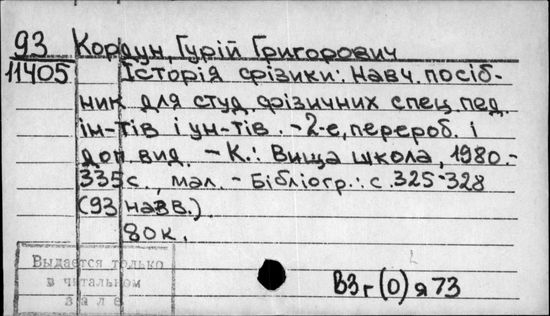 93 Кордун, Гурій Григорович
11405 Історія фізики: Навч. посіб-
ник для студ. фізичних спец. пед.
ін-тів і ун-тів. - 2-е, перероб. і
доп. вид. - К.: Вища школа, 1980.-
335 с., мал. - Бібліогр.: с. 325-328
(93 назв.).
80к.
Выдается только
в читальном
зале
В3г(0)я73